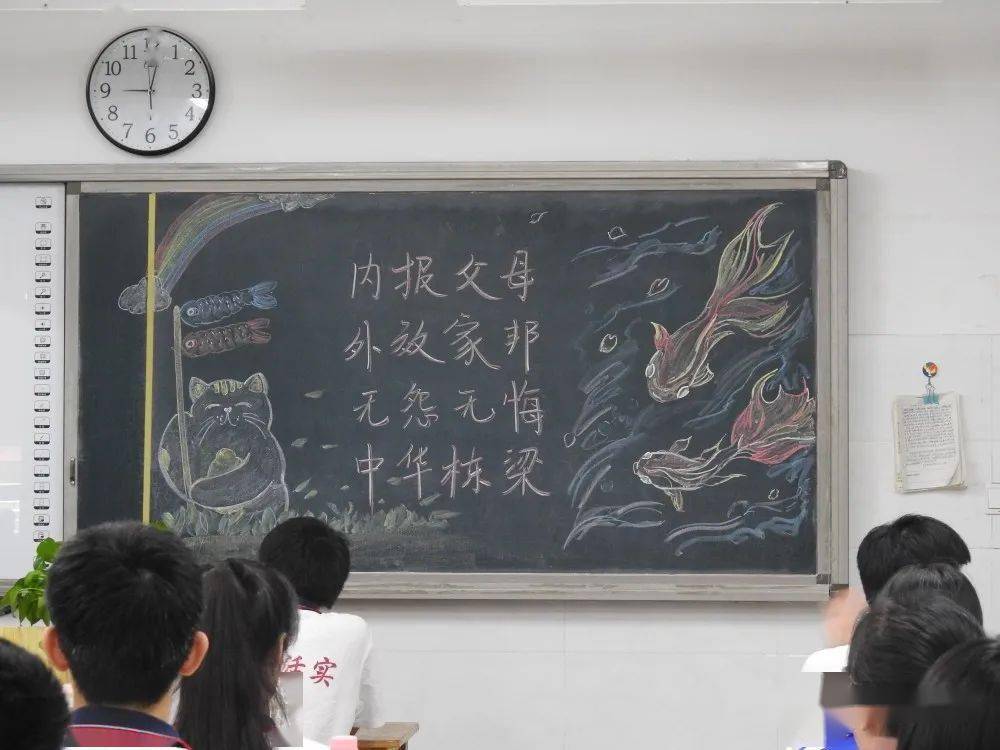 11 12 1
10 2
9 3
8 4
7 6 5
内报父母
外放家邦
无怨无悔
中华栋梁
实